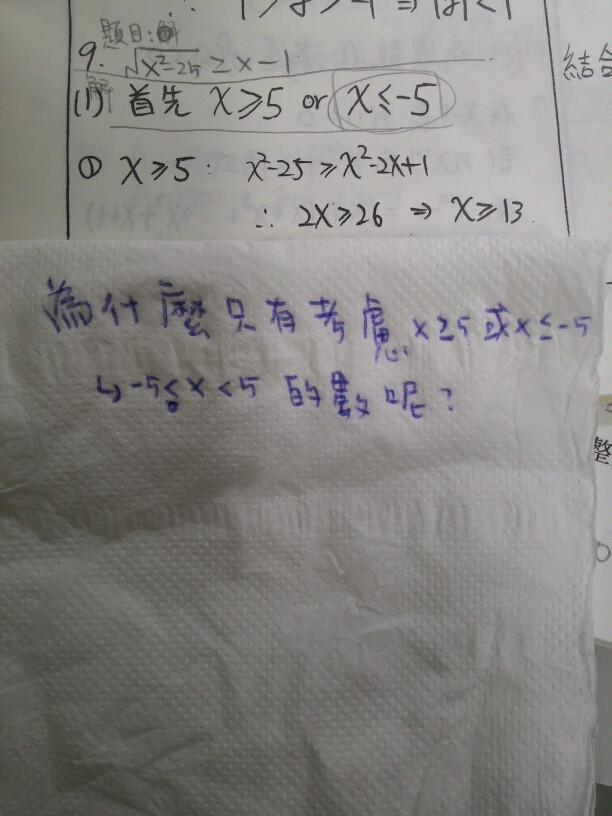 題目:解
9. √x²-25 ≥ x-1
解
(1) 首先 x≥5 or x≤-5
① x≥5: x²-25≥x²-2x+1
∴ 2x≥26 ⇒ x≥13.
結合
為什麼只有考慮 x≥5 或 x≤-5
↳ -5≤x<5 的數呢?
整